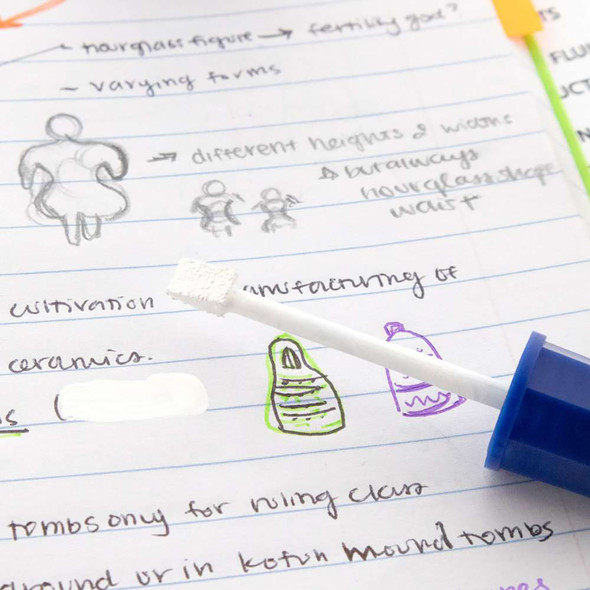 - hourglass figure → fertility god?
- varying forms
→ different heights & widths
but always
hourglass shape
waist
cultivation manufacturing of
ceramics.
(
tombs only for ruling class
ground or in kofun mound tombs
TS
FLU
UCT
N